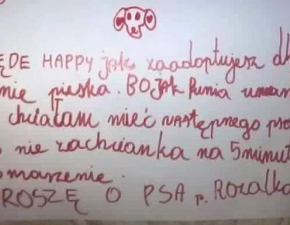 ĘDE HAPPY jak zaadoptujesz dl
nie pieska. BO jak Runia umar
chciałam mieć następnego ps
nie zachcianka na 5 minut
marzenie.
ROSZĘ O PSA p. Rozalka